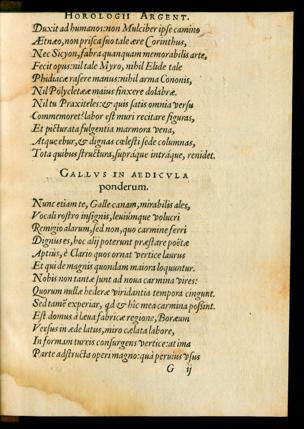 HOROLOGII ARGENT.
Duxit ad humanos: non Mulciber ipse camino
Ætnæo, non prisca suo tale ære Corinthus,
Nec Sicyon, fabra quanquam memorabilis arte,
Fecit opus: nil tale Myro, nihil Elide tale
Phidiacæ rasere manus: nihil arma Cononis,
Nil Polycletææ maius finxere dolabræ.
Nil tu Praxiteles: & quis satis omnia versu
Commemoret? labor est muri recitare figuras,
Et picturata fulgentia marmora vena,
Atque ebur, & dignas cœlesti sede columnas,
Tota quibus structura, supráque intráque, renidet.
GALLVS IN AEDICVLA
ponderum.
Nunc etiam te, Galle canam, mirabilis ales,
Vocali rostro insignis, leuiúmque volucri
Remigio alarum, sed non, quo carmine ferri
Dignus es, hoc alij poterunt præstare poëtæ
Aptiùs, è Clario quos ornat vertice laurus
Et qui de magnis quondam maiora loquuntur.
Nobis non tantæ sunt ad noua carmina vires:
Quorum nulla hederæ viridantia tempora cingunt.
Sed tamē experiar, qd & hîc mea carmina possint.
Est domus à læua fabricæ regione, Boræum
Versus in æde latus, miro cælata labore,
In formam turris consurgens vertice: at ima
Parte adstructa operi magno: quà peruius vsus
G ij